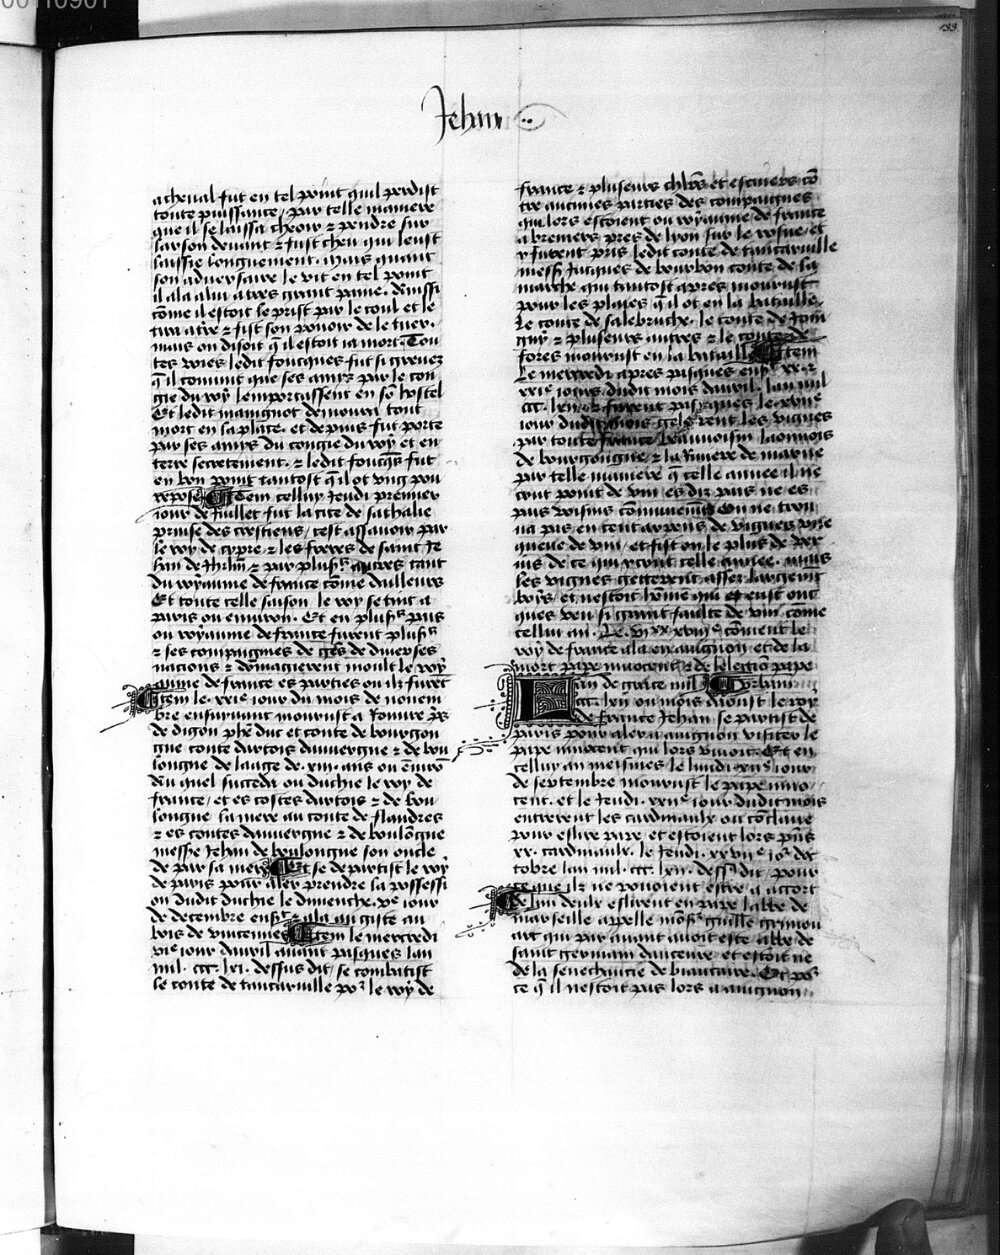 00110901
133
Jehan
a cheval fut en tel point quil perdist
toute puissance / par telle maniere
que il se laissa cheoir & pendre sur
larson devant & fust cheu qui leust
laissie longuement. Mais quant
son adversaire le vit en tel point
il ala a lui a tres grant paine. Et aussi
cōme il estoit le prist par le coul et le
tira a tre & fist son povoir de le tuer.
mais on disoit q̄ il estoit ia mort. Tou
tes voies ledit foucques fut si grevez
q̄ il convint que ses amis par le con
gie du roy lemportassent en sō hostel
Et ledit maingnot demoura tout
mort en la place. et depuis fut porte
par ses amis du congie du roy et en
terre secretement. & ledit foucq̄s fut
en bon point tantost q̄ il ot ung pou
repose Item celluy Jeudi premier
iour de Juillet fut la cite de sathalie
prinse des crestiens / cest assavoir par
le roy de cypre & les freres de saint Je
han de Jhrlm̄ & par plus̄ autres tant
du royaume de france cōme dailleurs
Et toute celle saison le roy se tint a
paris ou environ. Et en plus̄ pais
ou royaume de france furent plus̄
& ses compaignies de gēs de diverses
nacions & dōmagierent moult le roy
aume de france es parties ou ilz furēt
Item le .xxie iour du mois de novem
bre ensuivant mourust a Rouvre p̄s
de digon phē duc et conte de bourgon
gne conte dartois dauvergne & de bou
longne de laage de .xiii. ans ou enuirō
Du quel succeda ou duchie le roy de
france / et es contes dartois & de bou
longne la mere au conte de flandres
& es contes dauvergne & de boulōgne
messe Jehan de boulongne son oncle
de par sa mere Et se departist le roy
de paris pour aler prendre la possessi
on dudit duchie le dimenche .ve iour
de decembre ens̄t & ala au giste au
bois de vincennes Item le mercredi
vie iour davril avant pasques lan
mil. ccc. lxi. dessus dit / se combatist
le conte de tancarville por le roy de
france & plusieurs chl̄rs et escuiers cō
tre aucunes parties des compaignes
qui lors estoient ou royaume de france
a bremers pres de lyon sur le rosne / et
y furent pris ledit conte de tancarville
mess̄ Jacques de bourbon conte de la
marche qui tantost apres mourust
pour les plaies q̄ il ot en la bataille.
Le conte de salebruche. le conte de Join
gny & plusieurs autres & le conte de
fores mourust en la bataille Item
Le mercredi apres pasques ens̄t xx. &
xxie iours dudit mois davril. lan mil
ccc. lxii. & furent pasques le xviie
iour dudit mois gelerent les vignes
par toute france beauvoisin laonnois
de bourgongne & la Riviere de marne
par telle maniere q̄ celle annee il ne
crut point de vin es diz pais ne es
pais voisins communemēt On ne trou
va pas en cent arpens de vignes une
queue de vin / et fist on le plus de ver
ius de ce qui y crut celle annee. mais
les vignes getterent assez largemēt
boys / et nestoit home qui eust onc
ques veu si grant faulte de vin cōme
cellui an. Le. vixx xviiie cōment le
roy de france ala en avignon et de la
mort pape innocent & de lelectiō pape
urbain
Lan de grace mil
ccc. lxii ou mois daoust le roy
de france Jehan se partist de
paris pour aler a avignon visiter le
pape innocent qui lors vivoit. Et en
celluy an meismes le lundi .xiie iour
de septembre mourust le pape inno
cent. et le Jeudi. xxiie iour dudit mois
entrerent les cardinaulx ou cōclave
pour eslire pape et estoient lors p̄ns
xx. cardinaulx. le Jeudi .xxviie ior doc
tobre lan mil. ccc. lxii. dess̄ dit / pour
ce que ilz ne povoient estre a accort
de lun deulx eslirent en pape labbe de
marseille appelle mons̄r guille grimou
art qui par avant avoit este abbe de
saint germain daucerre et estoit ne
de la seneschaucie de biaucaire. Et por
ce q̄ il nestoit pas lors a avignon